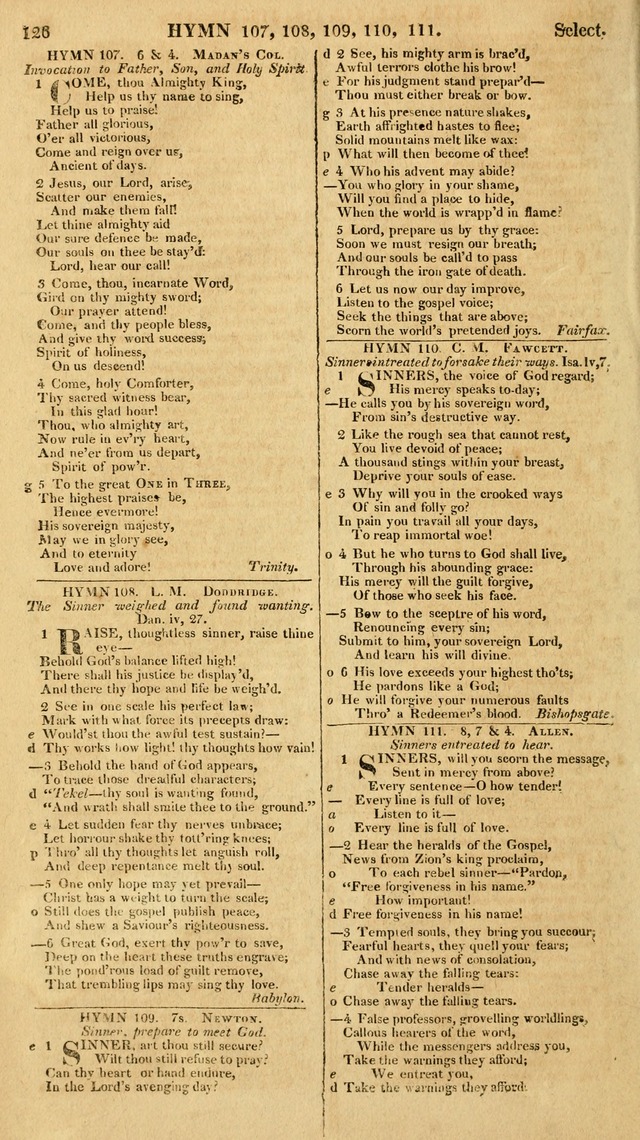 126 HYMN 107, 108, 109, 110, 111. Select.
HYMN 107. 6 & 4. MADAN'S COL.
Invocation to Father, Son, and Holy Spirit.
1 COME, thou Almighty King,
Help us thy name to sing,
Help us to praise!
Father all glorious,
O'er all victorious,
Come and reign over us,
Ancient of days.
2 Jesus, our Lord, arise,
Scatter our enemies,
And make them fall!
Let thine almighty aid
Our sure defence be made,
Our souls on thee be stay'd:
Lord, hear our call!
3 Come, thou, incarnate Word,
Gird on thy mighty sword;
Our prayer attend!
Come, and thy people bless,
And give thy word success;
Spirit of holiness,
On us descend!
4 Come, holy Comforter,
Thy sacred witness bear,
In this glad hour!
Thou, who almighty art,
Now rule in ev'ry heart,
And ne'er from us depart,
Spirit of pow'r.
g 5 To the great ONE in THREE,
The highest praises be,
Hence evermore!
His sovereign majesty,
May we in glory see,
And to eternity
Love and adore! Trinity.
HYMN 108. L. M. DODDRIDGE.
The Sinner weighed and found wanting.
Dan. iv, 27.
1 RAISE, thoughtless sinner, raise thine
eye—
Behold God's balance lifted high!
There shall his justice be display'd,
And there thy hope and life be weigh'd.
2 See in one scale his perfect law;
Mark with what force its precepts draw:
e Would'st thou the awful test sustain?—
d Thy works how light! thy thoughts how vain!
—3 Behold the hand of God appears,
To trace those dreadful characters;
d "Tekel—thy soul is wanting found,
"And wrath shall smite thee to the ground."
e 4 Let sudden fear thy nerves unbrace;
Let horrour shake thy tott'ring knees;
p Thro' all thy thoughts let anguish roll,
And deep repentance melt thy soul.
—5 One only hope may yet prevail—
Christ has a weight to turn the scale;
o Still does the gospel publish peace,
And shew a Saviour's righteousness.
—6 Great God, exert thy pow'r to save,
Deep on the heart these truths engrave;
The pond'rous load of guilt remove,
That trembling lips may sing thy love.
Babylon.
HYMN 109. 7s. NEWTON.
Sinner, prepare to meet God.
e 1 SINNER, art thou still secure?
Wilt thou still refuse to pray?
Can thy heart or hand endure,
In the Lord's avenging day?
d 2 See, his mighty arm is brac'd,
Awful terrors clothe his brow!
e For his judgment stand prepar'd—
Thou must either break or bow.
g 3 At his presence nature shakes,
Earth affrighted hastes to flee;
Solid mountains melt like wax:
p What will then become of thee!
e 4 Who his advent may abide?
—You who glory in your shame,
Will you find a place to hide,
When the world is wrapp'd in flame?
5 Lord, prepare us by thy grace:
Soon we must resign our breath;
And our souls be call'd to pass
Through the iron gate of death.
6 Let us now our day improve,
Listen to the gospel voice;
Seek the things that are above;
Scorn the world's pretended joys. Fairfax.
HYMN 110. C. M. FAWCETT.
Sinner intreated to forsake their ways. Isa. lv, 7.
1 SINNERS, the voice of God regard;
e His mercy speaks to-day;
—He calls you by his sovereign word,
From sin's destructive way.
2 Like the rough sea that cannot rest,
You live devoid of peace;
A thousand stings within your breast,
Deprive your souls of ease.
e 3 Why will you in the crooked ways
Of sin and folly go?
In pain you travail all your days,
To reap immortal woe!
o 4 But he who turns to God shall live,
Through his abounding grace:
His mercy will the guilt forgive,
Of those who seek his face.
—5 Bow to the sceptre of his word,
Renouncing every sin;
Submit to him, your sovereign Lord,
And learn his will divine.
o 6 His love exceeds your highest tho'ts;
He pardons like a God;
o He will forgive your numerous faults
Thro' a Redeemer's blood. Bishopsgate.
HYMN 111. 8, 7 & 4. ALLEN.
Sinners entreated to hear.
1 SINNERS, will you scorn the message,
Sent in mercy from above?
e Every sentence—O how tender!
— Every line is full of love;
a Listen to it—
o Every line is full of love.
—2 Hear the heralds of the Gospel,
News from Zion's king proclaim,
o To each rebel sinner—"Pardon,
"Free forgiveness in his name."
e How important!
d Free forgiveness in his name!
—3 Tempted souls, they bring you succour;
Fearful hearts, they quell your fears;
And with news of consolation,
Chase away the falling tears:
e Tender heralds—
o Chase away the falling tears.
—4 False professors, grovelling worldlings,
Callous hearers of the word,
While the messengers address you,
Take the warnings they afford;
e We entreat you,
d Take the warnings they afford.